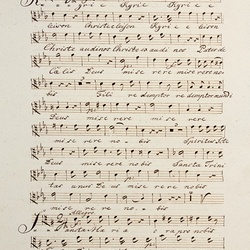 Kyrie Kyrie e
leison Christe eleison Kyrie e leison
Christe audi nos Christe exaudi nos Pater de
Caelis Deus mi se re re misere re no
bis Fili re demptor re demptor mundi
Deus mi se re re
mi se re re no bis Spiritus Ste
Deus mi se re re no bis Sancta Trini
tas unus De us mi se re re no bis
mi se re re no bis
Allegro
Sancta Ma ri a o ra pro nobis